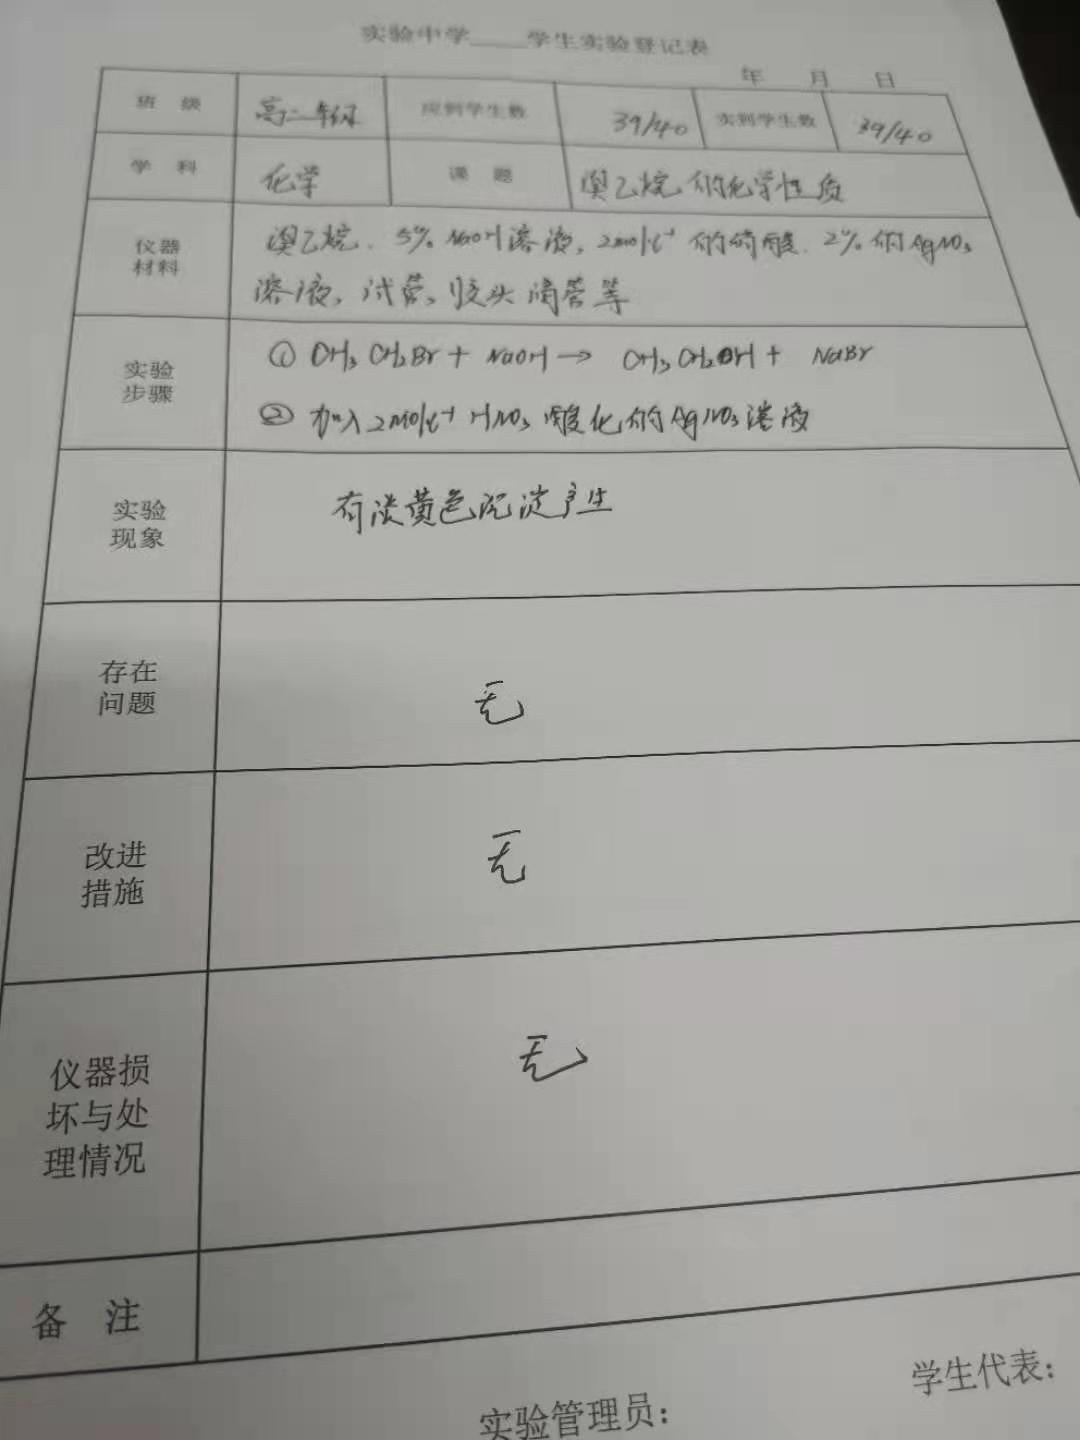 实验中学____学生实验登记表
年 月 日
班 级 高二年级 应到学生数 39/40 实到学生数 39/40
学 科 化学 课 题 溴乙烷的化学性质
仪器材料 溴乙烷、5% NaOH溶液, 2mol/L⁻¹的硝酸、2%的AgNO₃
溶液, 试管, 胶头滴管等
实验步骤 ① CH₃CH₂Br + NaOH → CH₃CH₂OH + NaBr
② 加入2mol/L⁻¹ HNO₃酸化的AgNO₃溶液
实验现象 有淡黄色沉淀产生
存在问题 无
改进措施 无
仪器损坏与处理情况 无
备 注
实验管理员: 学生代表: